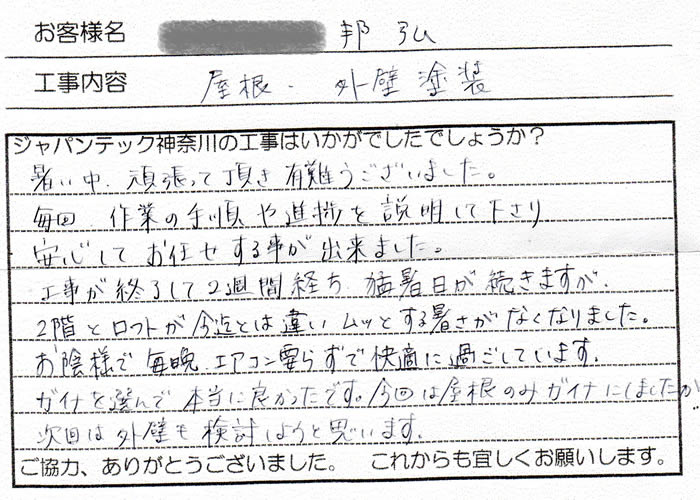 お客様名 邦弘
工事内容 屋根・外壁塗装
ジャパンテック神奈川の工事はいかがでしたでしょうか？
暑い中、頑張って頂き有難うございました。
毎回、作業の手順や進捗を説明して下さり
安心してお任せする事が出来ました。
工事が終了して2週間経ち、猛暑日が続きますが、
2階とロフトが今迄とは違いムッとする暑さがなくなりました。
お陰様で毎晩、エアコン要らずで快適に過ごしています。
ガイナを選んで本当に良かったです。今回は屋根のみガイナにしましたが
次回は外壁も検討しようと思います。
ご協力、ありがとうございました。 これからも宜しくお願いします。